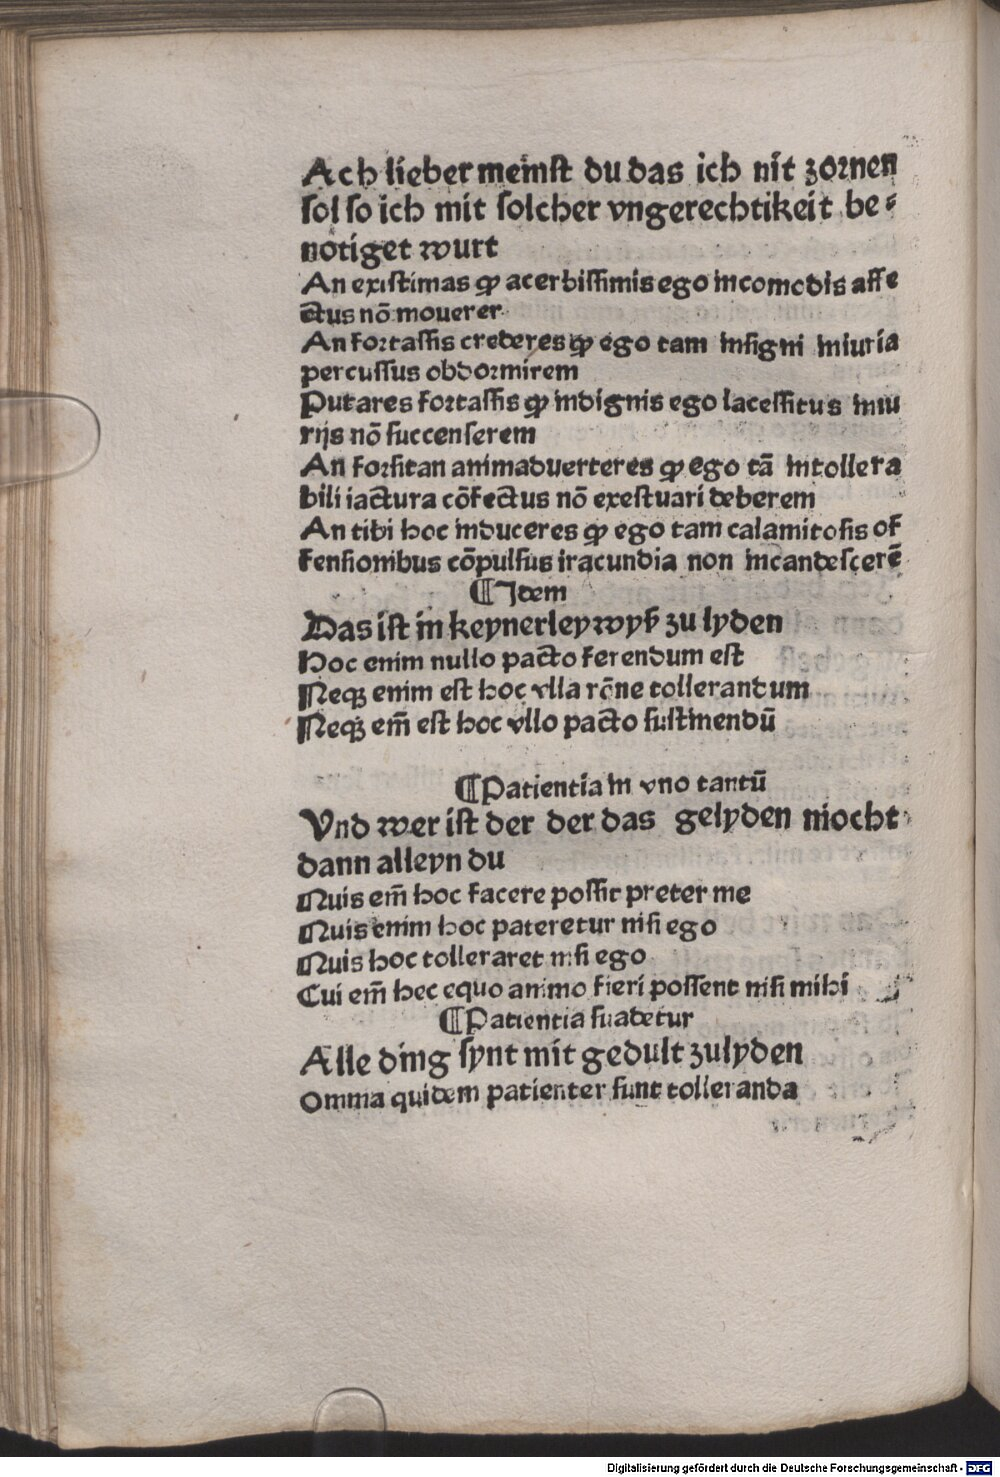 Ach lieber meinst du das ich nit zornen
sol so ich mit solcher vngerechtikeit be⸗
nötiget wurt
An existimas ꝙ acerbissimis ego incomodis affe
ctus nō mouerer
An fortassis crederes ꝙ ego tam insigni iniuria
percussus obdormirem
Putares fortassis ꝙ indignis ego lacessitus iniu
rijs nō succenserem
An forsitan animaduerteres ꝙ ego tā intollera
bili iactura cōfectus nō exestuari deberem
An tibi hoc induceres ꝙ ego tam calamitosis of
fensionibus cōpulsus iracundia non incandescerē
¶Idem
Das ist in keynerley wyß zu lyden
Hoc enim nullo pacto ferendum est
Neqꝫ enim est hoc vlla rōne tollerandum
Neqꝫ em̄ est hoc vllo pacto sustinendū
¶Patientia in vno tantū
Vnd wer ist der der das gelyden mocht
dann alleyn du
Quis em̄ hoc facere possit preter me
Quis enim hoc pateretur nisi ego
Quis hoc tolleraret nisi ego
Cui em̄ hec equo animo fieri possent nisi mihi
¶Patientia suadetur
Alle ding synt mit gedult zulyden
Omnia quidem patienter sunt tolleranda
Digitalisierung gefördert durch die Deutsche Forschungsgemeinschaft - DFG